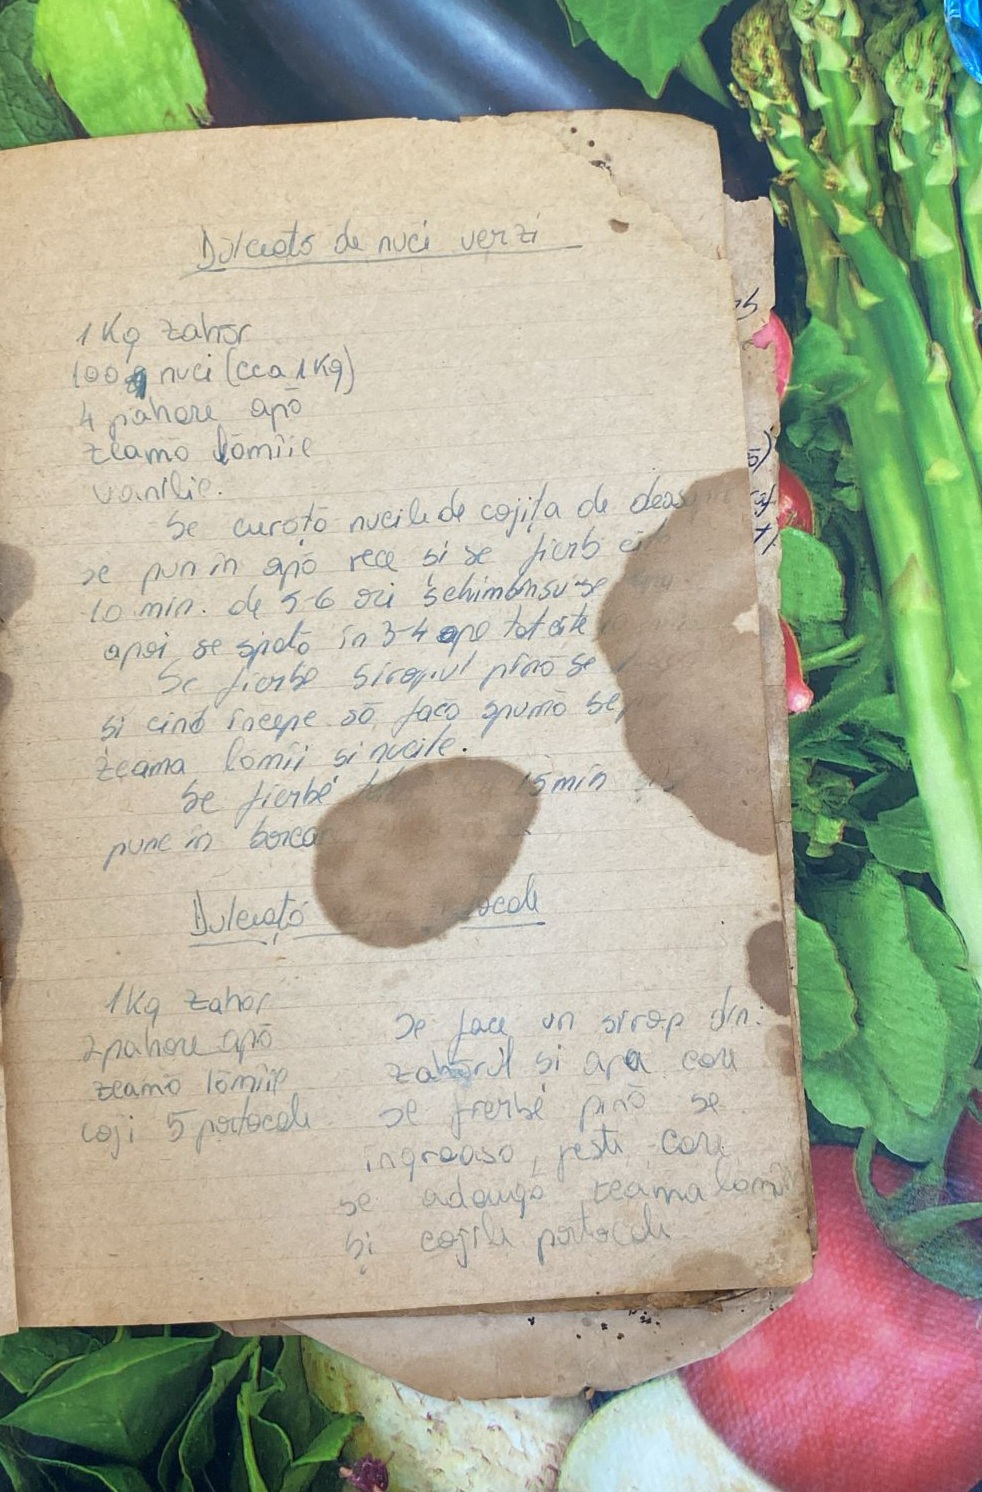 Dulceață de nuci verzi
1 Kg zahăr
100 nuci (cca 1 Kg)
4 pahare apă
zeamă lămîie
vanilie.
Se curăță nucile de cojița de
se pun în apă rece si se fierb
10 min. de 5-6 ori schimbînsu-se
apoi se spală în 3-4 ape tot cîte
Se fierbe siropul pînă se
si cînd începe să facă spumă se
zeama lămîii si nucile.
Se fierbe 15 min
pune în
Dulceață
1 Kg zahăr
2 pahare apă
zeamă lămîie
coji 5 portocale
Se face un sirop din
zahărul si apa care
se fierbe pînă se
îngroasă, peste care
se adaugă zeama lămîii
si cojile portocale